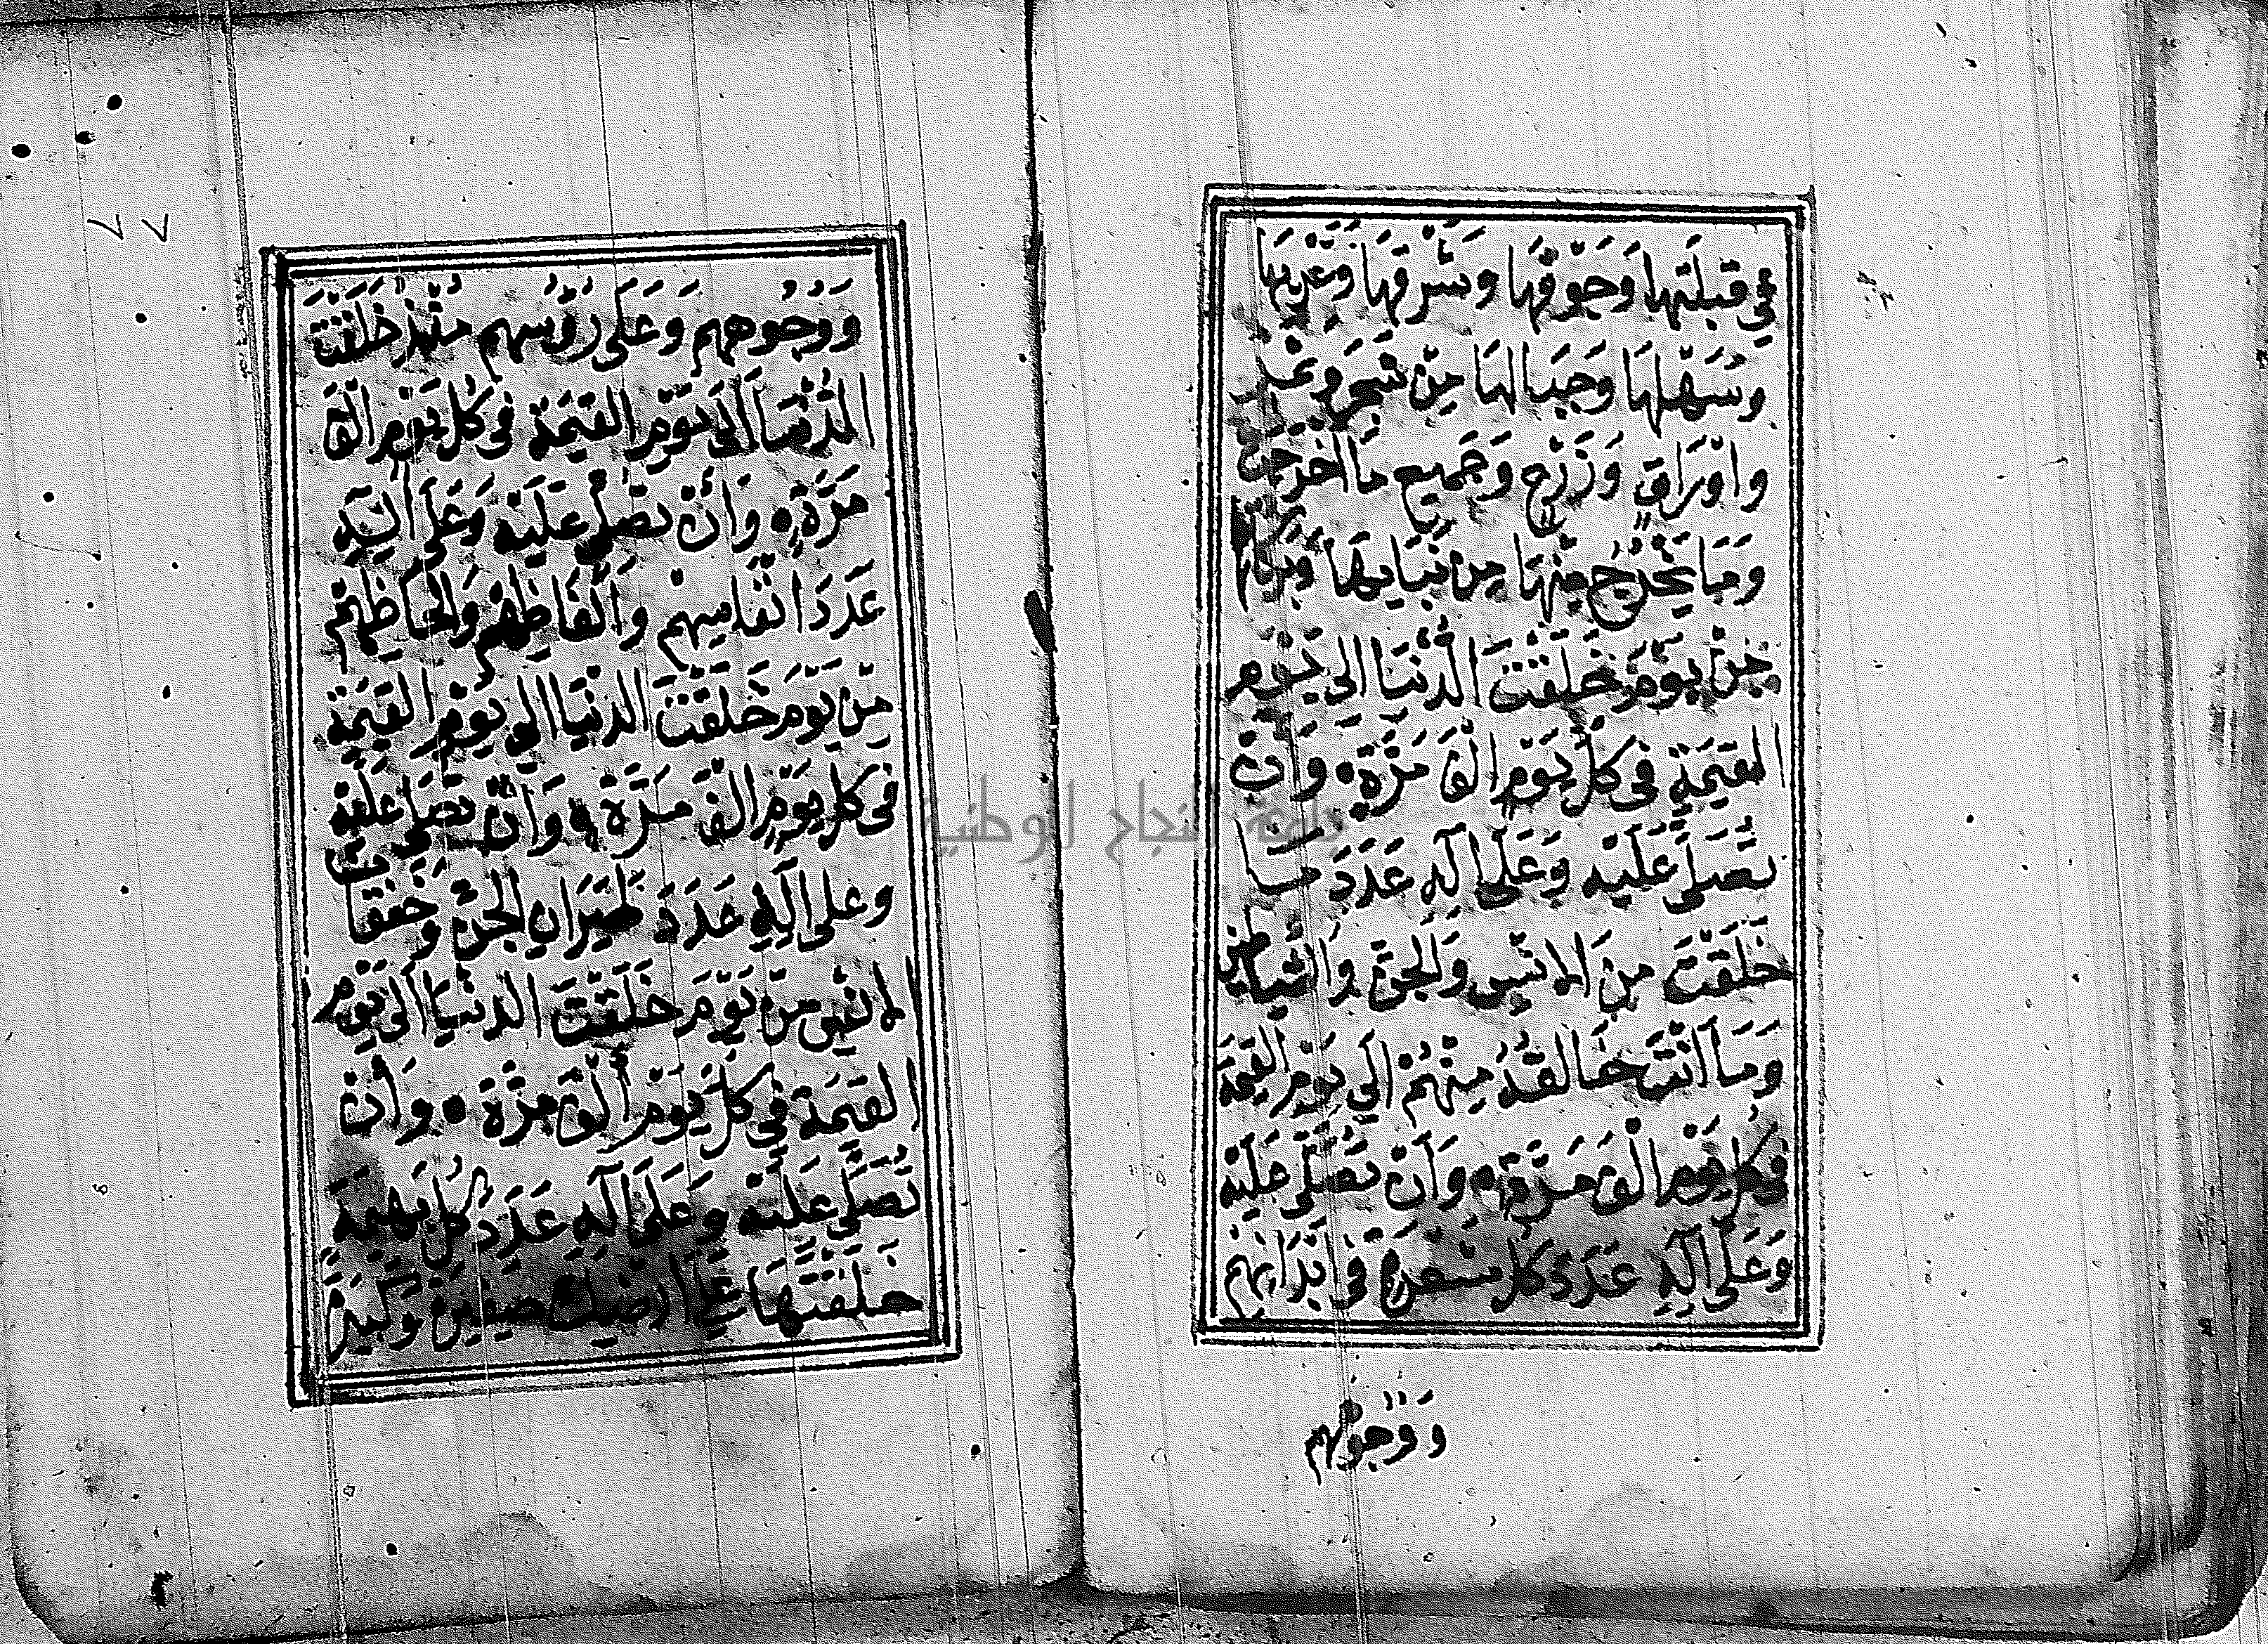 في قبلتها وجوفها وشرقها وغربها
وسهلها وجبالها من شجر وثمر
واوراق وزرع وجميع ما اخرجت
وما يخرج منها من نباتها وبركاتها
من يوم خلقت الدنيا الى يوم
القيمة في كل يوم الف مرة وان
تصلى عليه وعلى اله عدد ما
خلقت من الانس والجن والشياطين
وما انت خالقه منهم الى يوم القيمة
في كل يوم الف مرة وان تصلى عليه
وعلى اله عدد كل شعرة في ابدانهم
ووجوههم
٧٧
ووجوههم وعلى رؤسهم منذ خلقت
الدنيا الى يوم القيمة في كل يوم الف
مرة وان تصلى عليه وعلى اله
عدد انفاسهم والفاظهم والحاظهم
من يوم خلقت الدنيا الى يوم القيمة
في كل يوم الف مرة وان تصلى عليه
وعلى اله عدد طيران الجن وخفقات
الانس من يوم خلقت الدنيا الى يوم
القيمة في كل يوم الف مرة وان
تصلى عليه وعلى اله عدد كل بهيمة
خلقتها على ارضك صغيرة وكبيرة
جامعة النجاح الوطنية